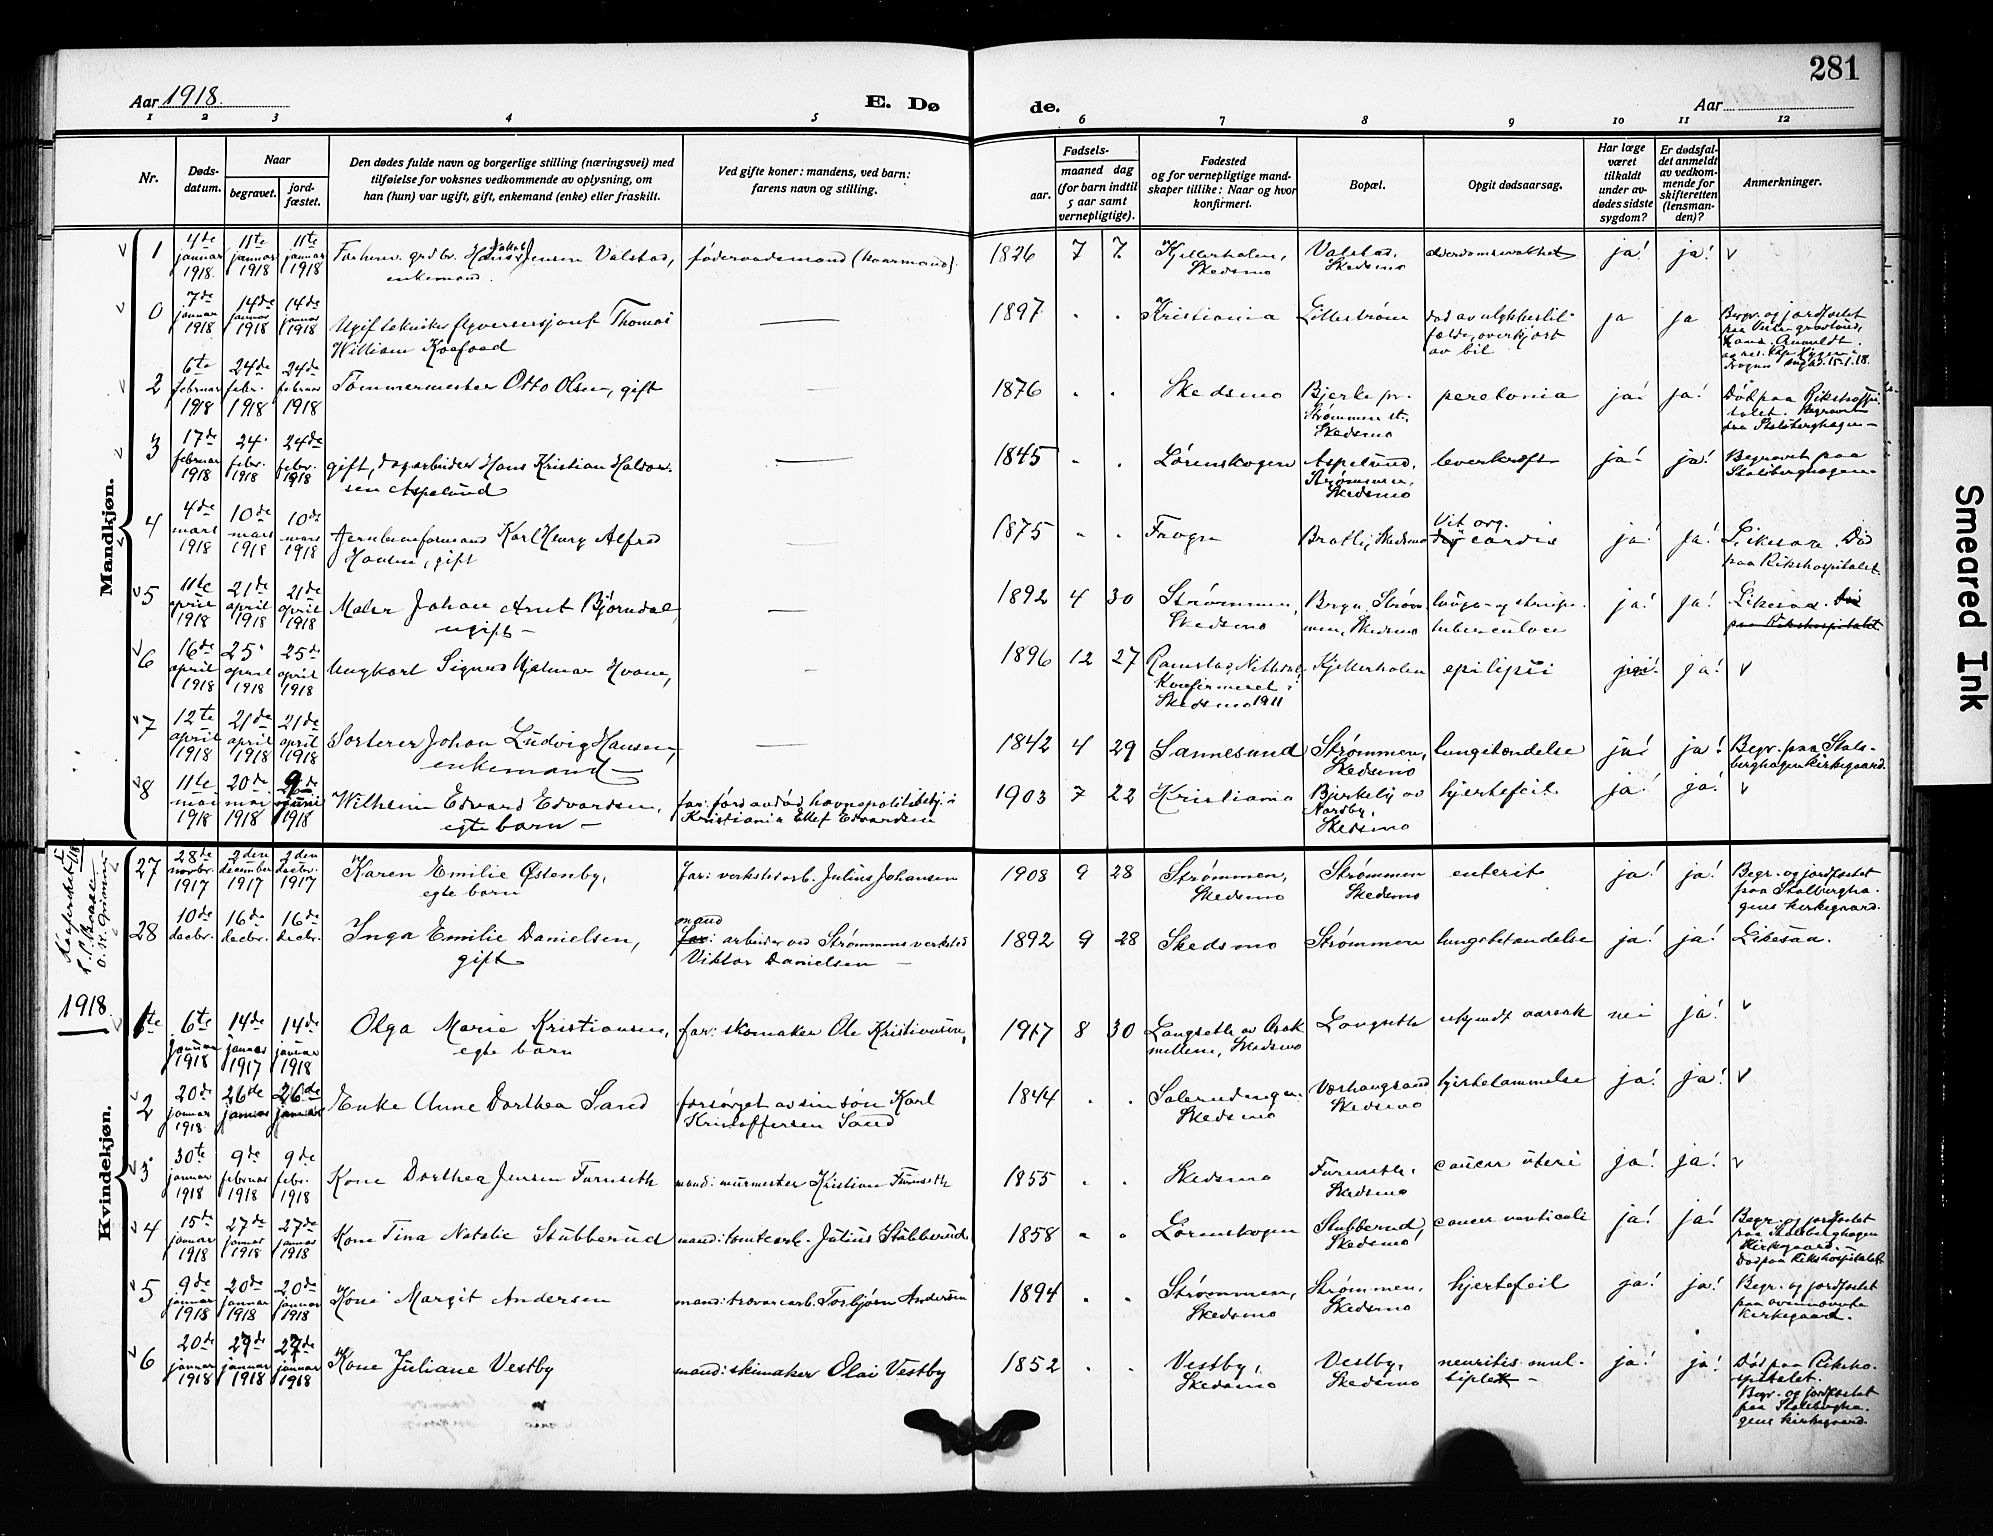 281
Aar 1918.
E. Dø
de.
Aar
1 2 3 4 5 6 7 8 9 10 11 12
Nr.
Dødsdatum.
Naar
begravet.
jordfæstet.
Den dødes fulde navn og borgerlige stilling (næringsvei) med
tilføielse for voksnes vedkommende av oplysning, om
han (hun) var ugift, gift, enkemand (enke) eller fraskilt.
Ved gifte koner: mandens, ved barn:
farens navn og stilling.
Fødsels-
aar.
maaned dag
(for barn indtil
5 aar samt
vernepligtige).
Fødested
og for vernepligtige mand-
skaper tillike: Naar og hvor
konfirmert.
Bopæl.
Opgit dødsaarsag.
Har læge
været
tilkaldt
under av-
dødes sidste
sygdom?
Er dødsfal-
det anmeldt
av vedkom-
mende for
skifteretten
(lensman-
den)?
Anmerkninger.
Mandkjøn.
1 4de januar 1918 11te januar 1918 11te januar 1918 Jensen Valstad, enkemand. føderaadsmand (kaarmand). 1826 7 7 Kjellerholen, Skedsmo Valstad, Skedsmo ja! ja! v
0 7de januar 1918 14de januar 1918 14de januar 1918 Thomas William Koefoed — 1897 " " Kristiania Lillestrøm død av ulykkestilfælde, overkjørt av bil ja ja Begr. og jordfæstet paa Vestre gravlund,
2 6te februar 1918 24de febr. 1918 24de februar 1918 Tømmermester Otto Olsen, gift — 1876 " " Skedsmo Bjerke pr. Strømmen st. Skedsmo peretonia ja! ja! Død paa Rikshospitalet. Begravet paa Stalsberghagen —
3 17de februar 1918 24. febr. 1918 24de febr. 1918 gift, dagarbeider Hans Kristian Haldorsen Aspelund — 1845 " " Lørenskogen Aspelund, Strømmen, Skedsmo leverkræft ja! ja! Begravet paa Stalsberghagen —
4 4de mars 1918 10de mars 1918 10de mars 1918 Karl Henry Alfred Hansen, gift — 1875 " " Frogn Bratli, Skedsmo Vit. org. cordis ja! ja! Likesaa. Død paa Rikshospitalet.
5 11te april 1918 21de april 1918 21de april 1918 Maler Johan Arnt Bjørndal, ugift — 1892 4 30 Strømmen, Skedsmo Strømmen, Skedsmo lunge- og strupetuberculose ja! ja! Likesaa. Død paa Rikshospitalet.
6 16de april 1918 25. april 1918 25de april 1918 Ungkarl Signus Hjalmar — 1896 12 27 Ramstad, Nittedal, Konfirmeret i Skedsmo 1911 Kjellerholen epilepsi ja! ja! v
7 12te april 1918 21de april 1918 21de april 1918 Sorterer Johan Ludvig Hansen, enkemand — 1842 4 29 Sannesund Strømmen, Skedsmo lungebetændelse ja! ja! Begr. paa Stalsberghagen kirkegaard.
8 11te mai 1918 20de mai 1918 9de juni 1918 Wilhelm Edvard Edvardsen, egte barn — far: havnepolitibetj. i Kristiania Ellef Edvardsen 1903 7 22 Kristiania Bjerkely av Nordby, Skedsmo hjertefeil ja! ja! v
Kvindekjøn.
27 28de novbr. 1917 2den december 1917 2den decbr. 1917 Karen Emilie Østenby, egte barn far: verkstedarb. Julius Johansen 1908 9 28 Strømmen, Skedsmo Strømmen Skedsmo enterit ja! ja! Begr. og jordfæstet paa Stalsberghagens kirkegaard.
28 10de decbr. 16de decbr. 16de decbr. Inga Emilie Danielsen, gift mand far: arbeider ved Strømmens verksted Viktor Danielsen — 1892 9 28 Skedsmo Strømmen lungebetændelse ja! ja! Likesaa.
1918.
1te 6te januar 1918 14de januar 1917 14de januar 1918 Olga Marie Kristiansen, egte barn far: skomaker Ole Kristiansen, 1917 8 30 Langseth av Asak mellem, Skedsmo Langseth ukjendt aarsak nei ja! v
2 20de januar 1918 26de januar 26de januar Enke Anne Dorthea Sand forsørget av sin søn Karl Kristoffersen Sand 1844 " " Skedsmo Skedsmo hjertelammelse ja! ja! v
3 30te januar 1918 9de februar 1918 9de febr. 1918 Kone Dorthea Jensen Furuseth mand: murmester Kristian Furuseth 1855 " " Skedsmo Furuseth, Skedsmo cancer uteri ja! ja! v
4 15de januar 1918 27de januar 1918 27de januar 1918 Kone Tina Natalie Stubberud mand: tomtearb. Julius Stubberud 1858 " " Lørenskogen Stubberud, Skedsmo cancer ventriculi ja! ja! Begr. og jordfæstet paa Stalsberghagen kirkegaard. — Død paa Rikshospitalet.
5 9de januar 1918 20de januar 1918 20de januar 1918 Kone Margit Andersen mand: Torbjørn Andersen 1894 " " Strømmen, Skedsmo Strømmen, Skedsmo hjertefeil ja! ja! Begr. og jordfæstet paa ovennævnte kirkegaard.
6 20de januar 1918 27de januar 1918 27de januar 1918 Kone Juliane Vestby mand: skomaker Olai Vestby 1852 " " Vestby, Skedsmo Vestby, Skedsmo neuritis multiplex — ja! ja! Død paa Rikshospitalet. Begr. og jordfæstet paa Stalsberghagens kirkegaard.
Smeared Ink